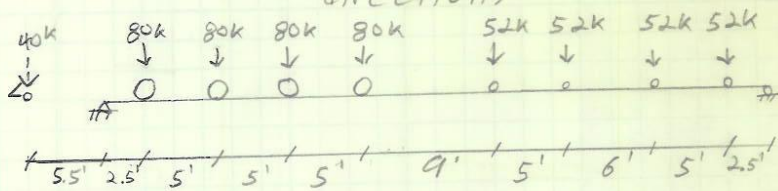 40K 80K 80K 80K 80K 52K 52K 52K 52K
5.5' 2.5' 5' 5' 5' 9' 5' 6' 5' 2.5'